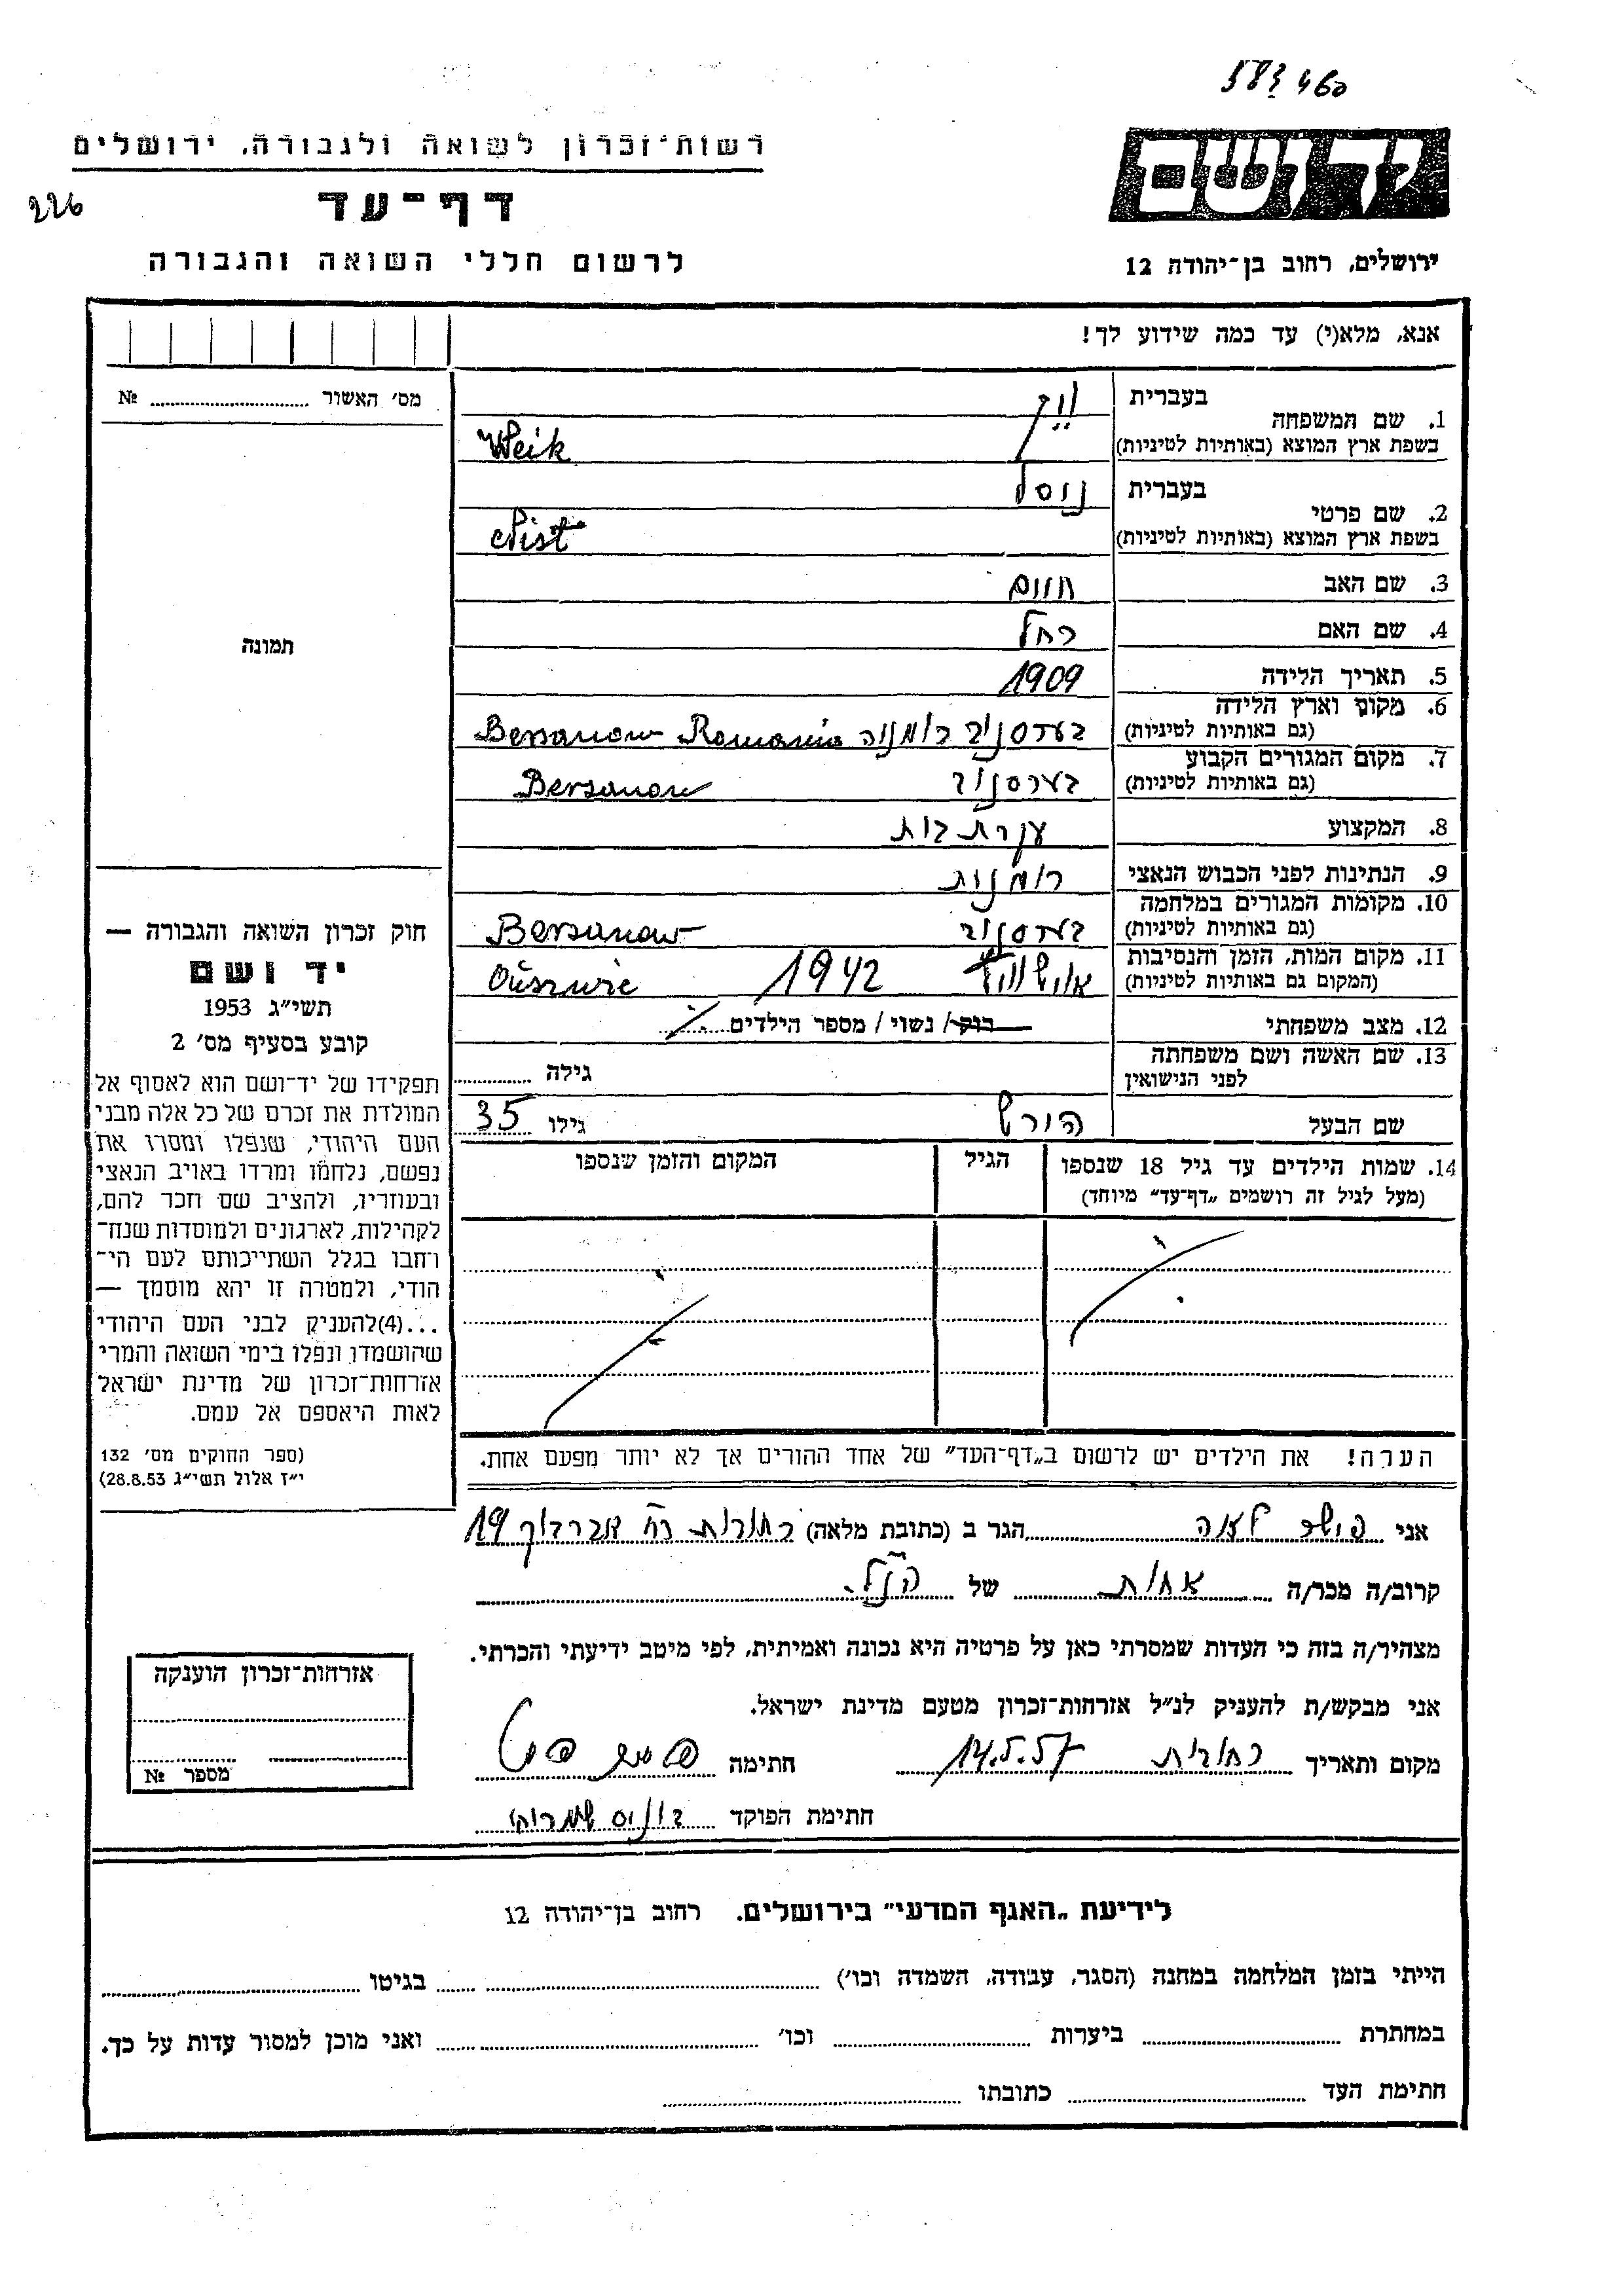 583460
רשות־זכרון לשואה ולגבורה, ירושלים
יד ושם
226
דף־עד
לרשום חללי השואה והגבורה
ירושלים, רחוב בן־יהודה 12
אנא, מלא(י) עד כמה שידוע לך!
מס׳ האשור № 
1. שם המשפחה
בעברית
וייק
בשפת ארץ המוצא (באותיות לטיניות) Weik
2. שם פרטי
בעברית
בשפת ארץ המוצא (באותיות לטיניות)
3. שם האב חיים
4. שם האם רחל
5. תאריך הלידה 1909
6. מקום וארץ הלידה
(גם באותיות לטיניות) רומניה Bersanow Romania
7. מקום המגורים הקבוע
(גם באותיות לטיניות) Bersanow
8. המקצוע עקרת בית
9. הנתינות לפני הכבוש הנאצי רומנית
10. מקומות המגורים במלחמה
(גם באותיות לטיניות) Bersanow
11. מקום המות, הזמן והנסיבות
(המקום גם באותיות לטיניות) 1942
12. מצב משפחתי רוק/ נשוי/ מספר הילדים
13. שם האשה ושם משפחתה
לפני הנישואין
גילה
שם הבעל הירש גילו 35
14. שמות הילדים עד גיל 18 שנספו
(מעל לגיל זה רושמים „דף־עד״ מיוחד)
הגיל
המקום והזמן שנספו
הערה! את הילדים יש לרשום ב„דף־העד״ של אחד ההורים אך לא יותר מפעם אחת.
תמונה
חוק זכרון השואה והגבורה —
יד ושם
תשי״ג 1953
קובע בסעיף מס׳ 2
תפקידו של יד־ושם הוא לאסוף אל
המולדת את זכרם של כל אלה מבני
העם היהודי, שנפלו ומסרו את
נפשם, נלחמו ומרדו באויב הנאצי
ובעוזריו, ולהציב שם וזכר להם,
לקהילות, לארגונים ולמוסדות שנח־
רבו בגלל השתייכותם לעם הי־
הודי, ולמטרה זו יהא מוסמך —
...(4)להעניק לבני העם היהודי
שהושמדו ונפלו בימי השואה והמרי
אזרחות־זכרון של מדינת ישראל
לאות היאספם אל עמם.
(ספר החוקים מס׳ 132
י״ז אלול תשי״ג 28.8.53)
אני לאה הגר ב (כתובת מלאה) רחובות רח׳ 19
קרוב/ה מכר/ה אחות של הנ״ל
מצהיר/ה בזה כי העדות שמסרתי כאן על פרטיה היא נכונה ואמיתית, לפי מיטב ידיעתי והכרתי.
אני מבקש/ת להעניק לנ״ל אזרחות־זכרון מטעם מדינת ישראל.
מקום ותאריך רחובות 14.5.57 חתימה
חתימת הפוקד
אזרחות־זכרון הוענקה
מספר №
לידיעת „האגף המדעי״ בירושלים. רחוב בן־יהודה 12
הייתי בזמן המלחמה במחנה (הסגר, עבודה, השמדה וכו׳) בגיטו
במחתרת ביערות וכו׳ ואני מוכן למסור עדות על כך.
חתימת העד כתובתו